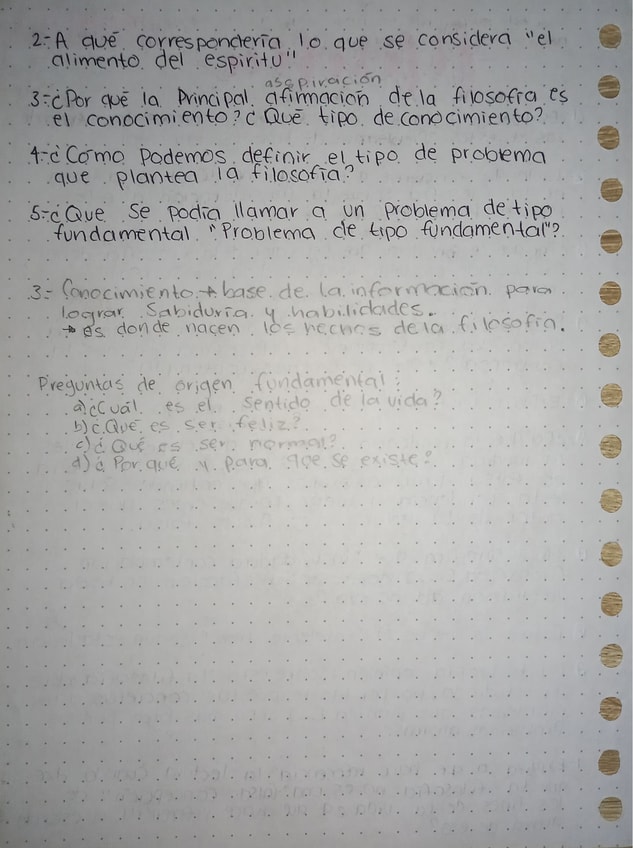 2-A qué correspondería lo que se considera "el
alimento del espiritu"
asspiración
3-¿Por qué la Principal afirmación de la filosofía es
el conocimiento? ¿Qué tipo de conocimiento?
4-¿Cómo Podemos definir el tipo de problema
que plantea la filosofía?
5-¿Que se podía llamar a un problema de tipo
fundamental "Problema de tipo fundamental"?
3.- Conocimiento → base de la información para
lograr Sabiduría y habilidades.
→ es donde nacen los hechos de la filosofía.
Preguntas de origen fundamental:
a)¿Cuál es el sentido de la vida?
b)¿Qué es ser feliz?
c)¿Qué es ser normal?
d)¿Por qué y para que se existe?